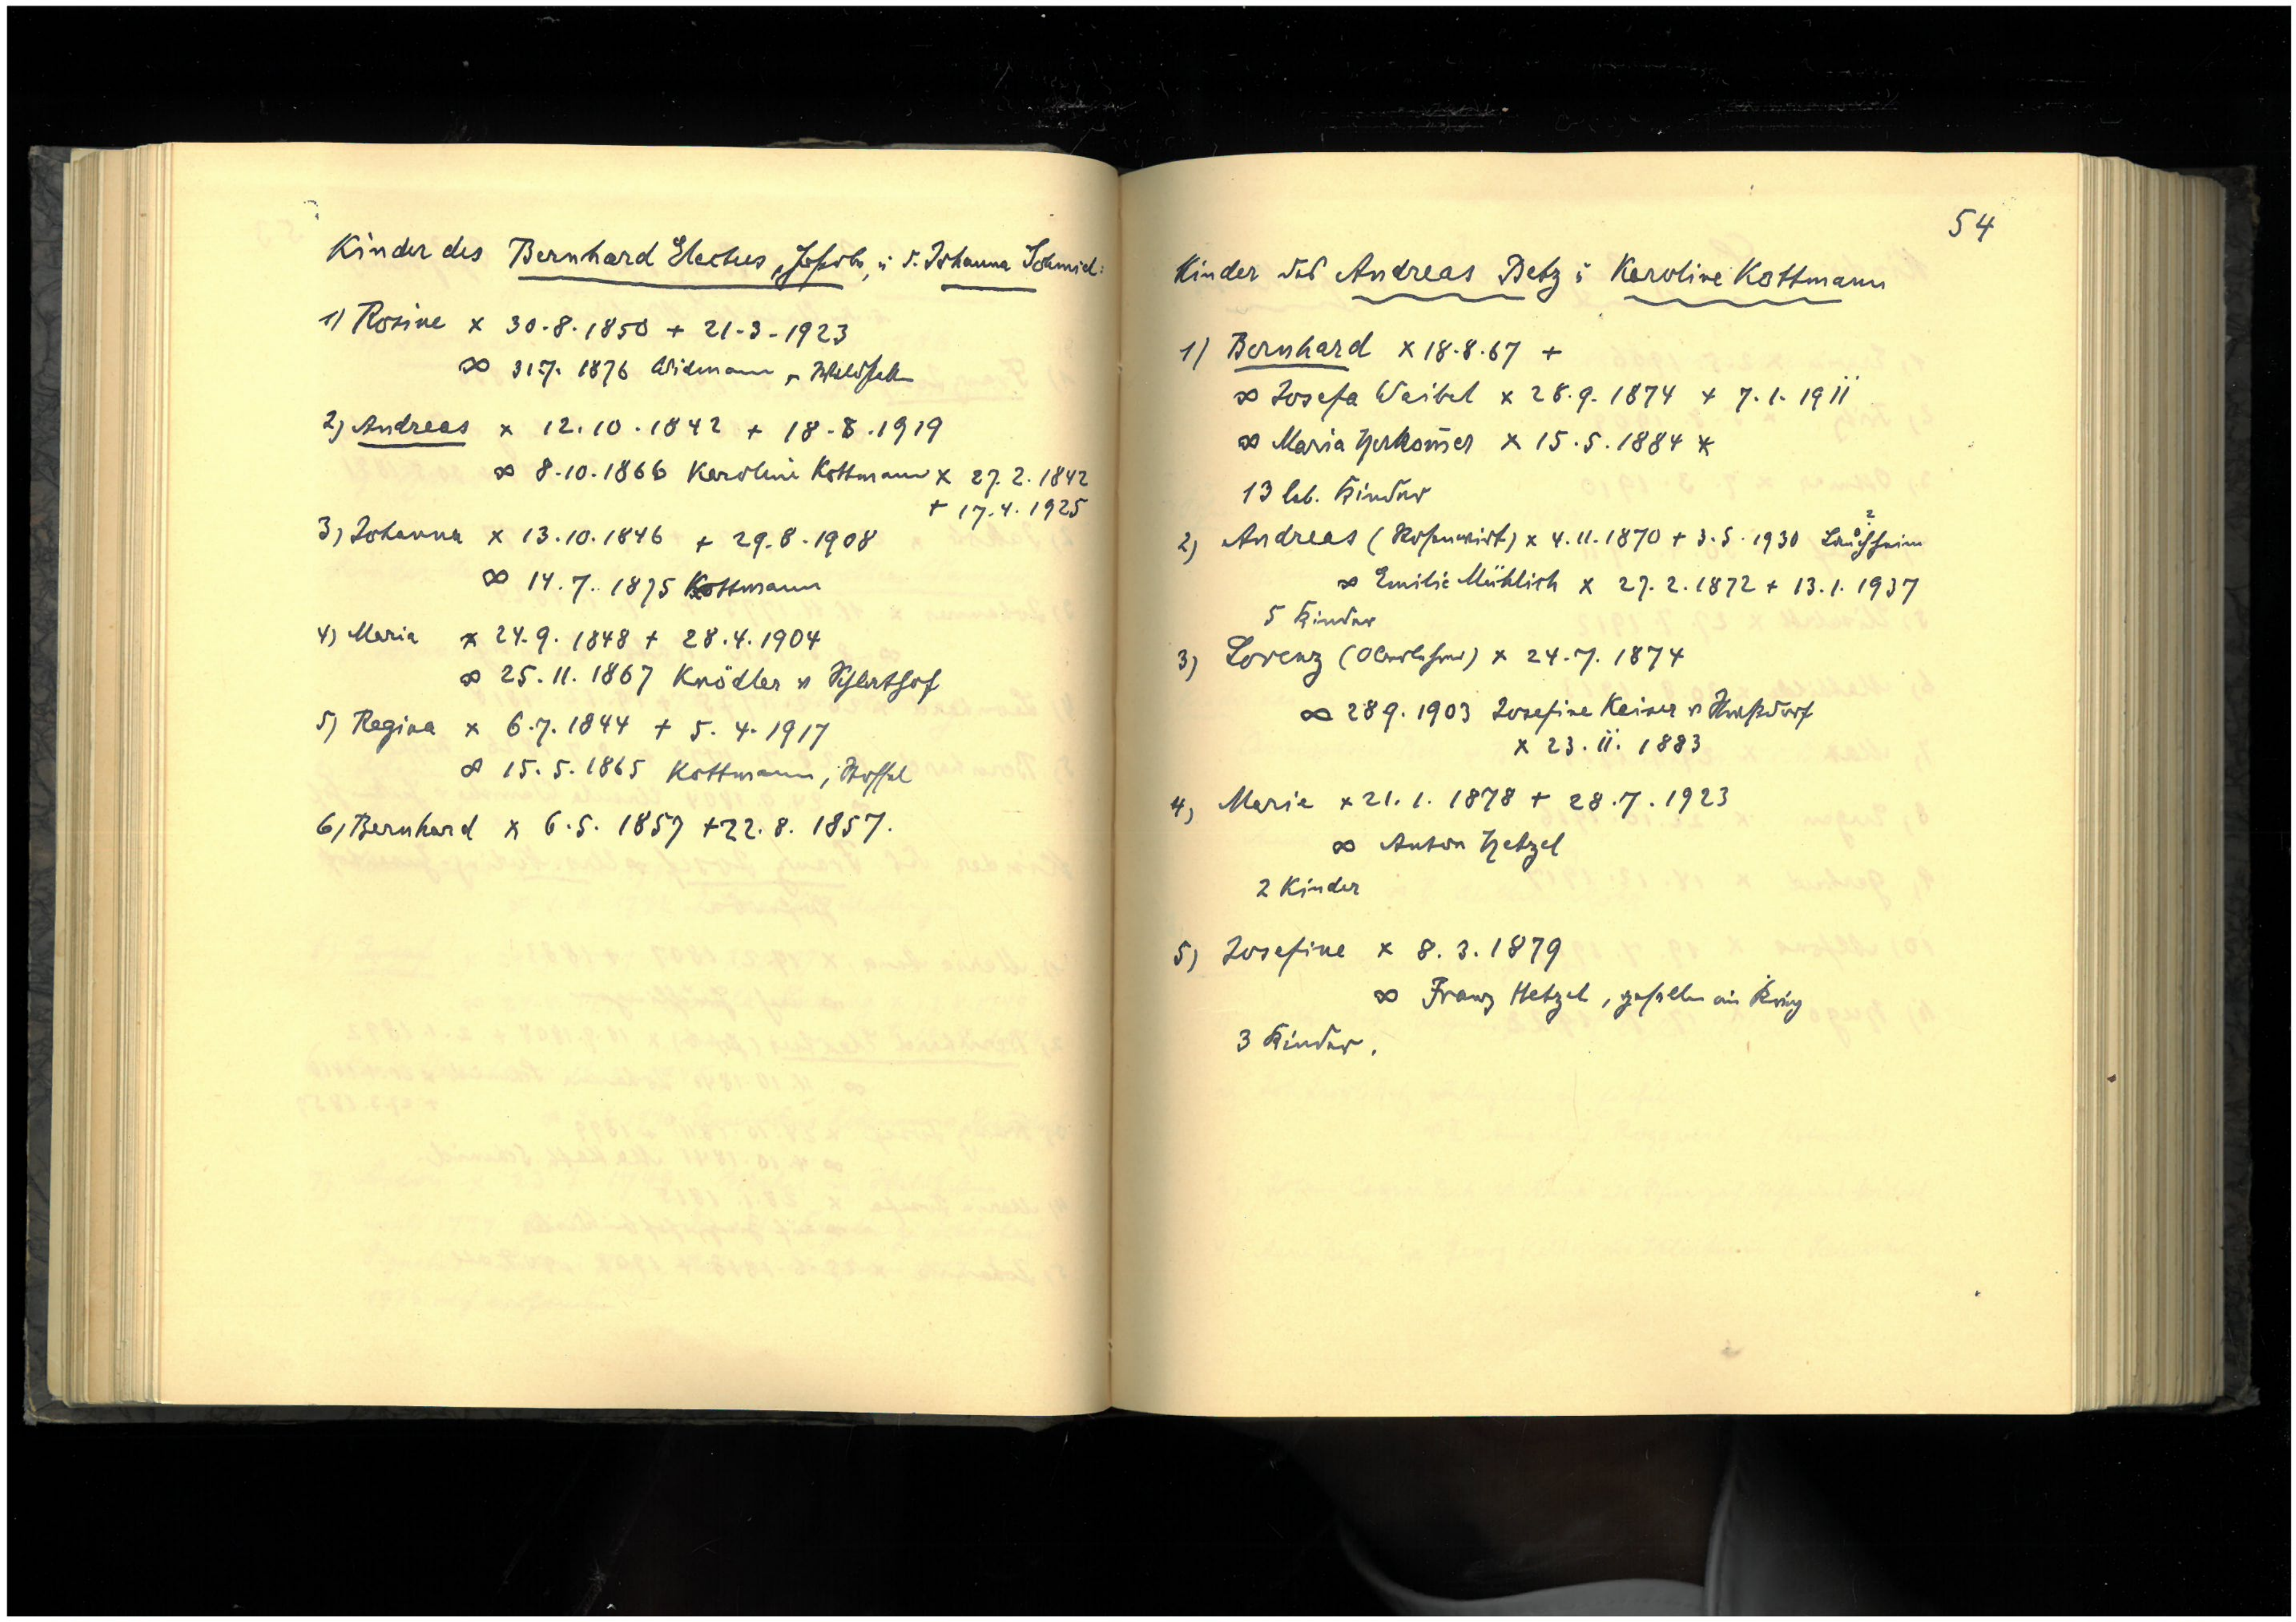 Kinder des Bernhard Electus, u. d. Johanna Schmid:
1) Rosine x 30.8.1850 + 21.3.1923
∞ 31.7. 1876 Widmann
2) Andreas x 12.10.1842 + 18.8.1919
∞ 8.10.1866 Karoline Kottmann x 27.2.1842
+ 17.4.1925
3) Johanna x 13.10.1846 + 29.8.1908
∞ 14.7.1875 Kottmann
4) Maria x 24.9.1848 + 28.4.1904
∞ 25.11.1867 Knödler v
5) Regina x 6.7.1844 + 5.4.1917
∞ 15.5.1865 Kottmann,
6) Bernhard x 6.5.1857 + 22.8.1857.
54
Kinder des Andreas Betz u Karoline Kottmann
1) Bernhard x 18.8.67 +
∞ Josefa Waibel x 28.9.1874 + 7.1.1911
∞ Maria Herkom̄er x 15.5.1884 x
13 leb. Kinder
2) Andreas (Rosenwirt) x 4.11.1870 + 3.5.1930 Lauchheim
∞ Emilie Mühlich x 27.2.1872 + 13.1.1937
5 Kinder
3) Lorenz (Oberlehrer) x 24.7.1874
∞ 28 9.1903 Josefine Kaiser v
x 23.11.1883
4) Maria x 21.1.1878 + 28.7.1923
∞ Anton Hetzel
2 Kinder
5) Josefine x 8.3.1879
∞ Franz Hetzel, gefallen im Krieg
3 Kinder.